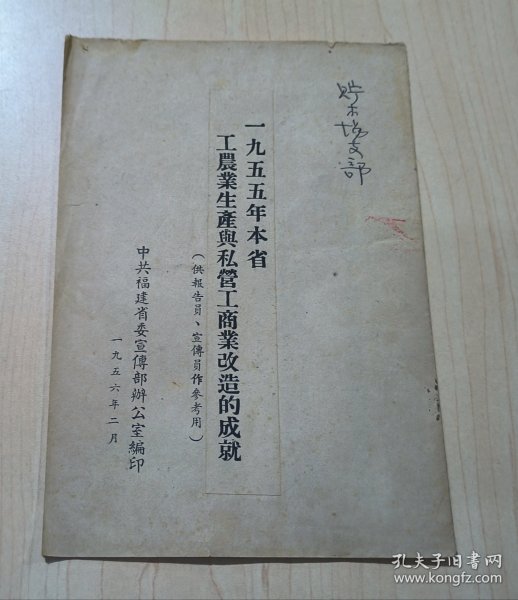 贮木场支部
一九五五年本省
工農業生產與私營工商業改造的成就
（供報告員、宣傳員作參考用）
中共福建省委宣傳部辦公室編印
一九五六年二月
孔夫子旧书网
www.kongfz.com